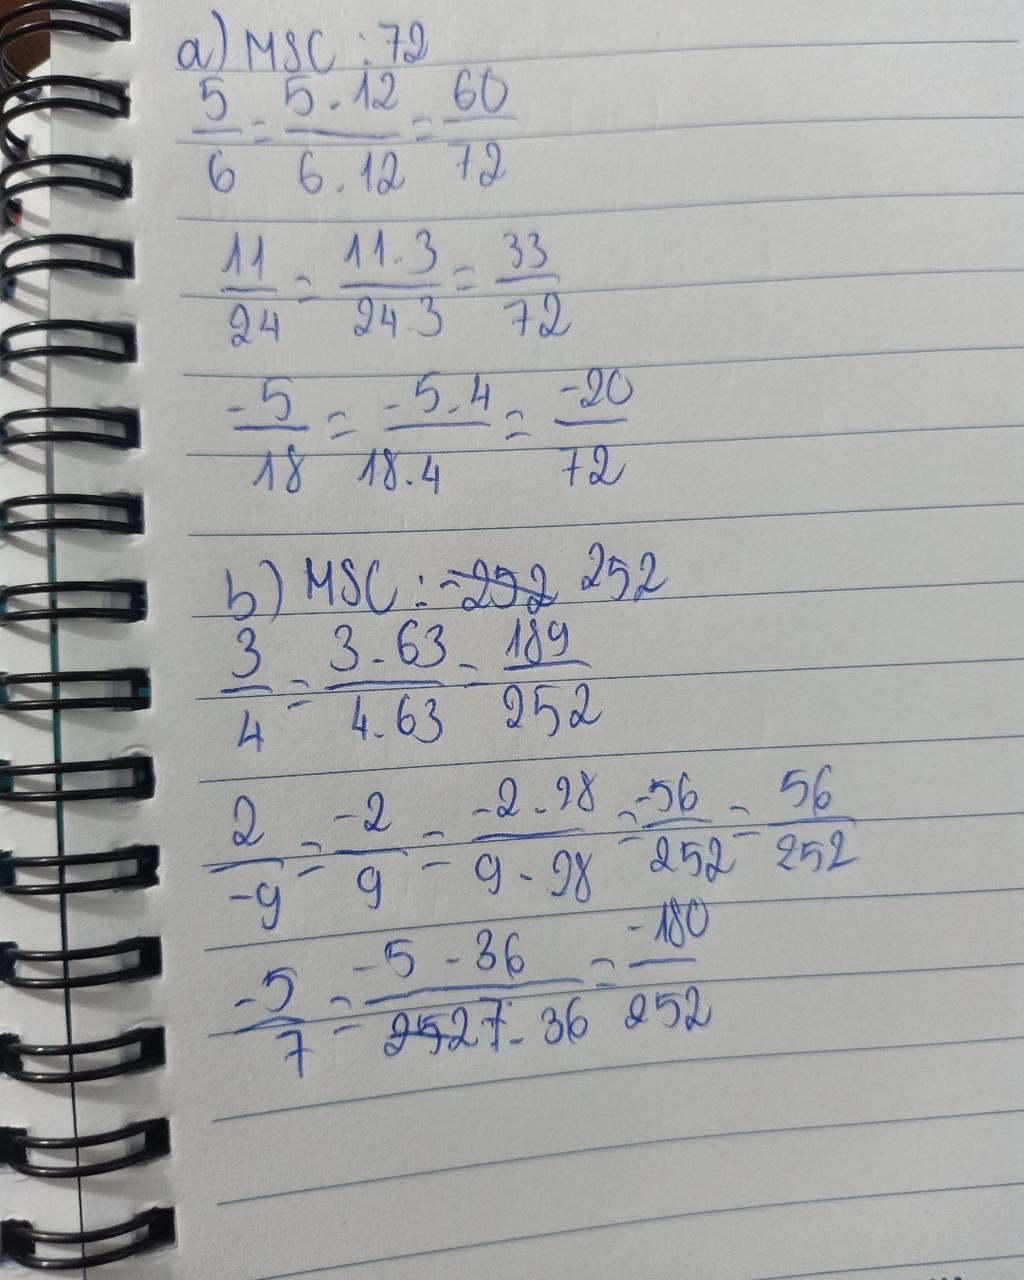 a) MSC : 72
5/6 = 5 . 12/6 . 12 = 60/72
11/24 = 11 . 3/24 . 3 = 33/72
-5/18 = -5 . 4/18 . 4 = -20/72
b) MSC : -252 252
3/4 = 3 . 63/4 . 63 = 189/252
2/-9 = -2/9 = -2 . 28/9 . 28 = -56/252 = 56/252
-5/7 = -5 . 36/252 7 . 36 = -180/252